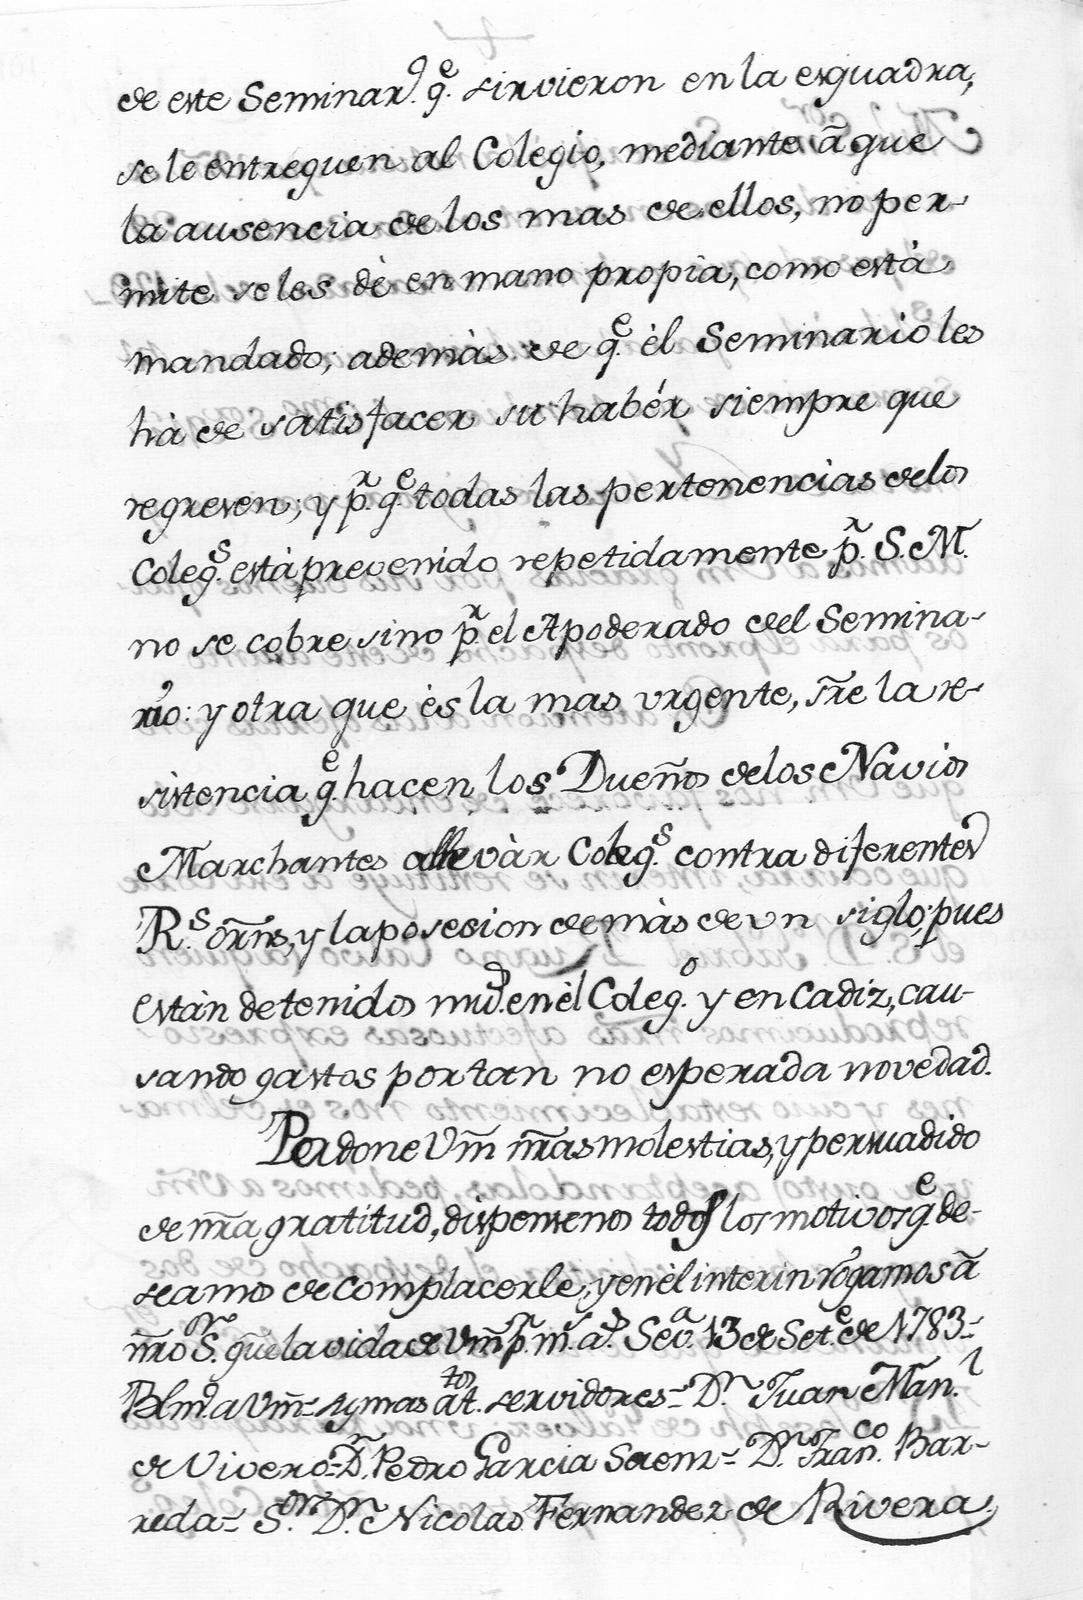 de este Seminar.º q.e sirvieron en la esquadra,
se le entreguen al Colegio, mediante ã que
la ausencia de los mas de ellos, no per-
mite se les dè en mano propia, como està
mandado; ademàs de q.e èl Seminario les
hà de satisfacer su habér siempre que
regresen; y p.r q.e todas las pertenencias de los
Coleg.s està prevenido repetidamente p.r S. M.
no se cobre sino p.r el Apoderado del Semina-
rio: y otra que ès la mas urgente, s̃re la re-
sistencia q.e hacen los Dueños de los Navios
Marchantes allevàr Coleg.s contra diferentes
R.s òrns, y la posesion de màs de un siglo; pues
estàn detenidos mu.s en èl Coleg.º y en Cadiz, cau-
sando gastos por tan no esperada novedad.
Perdone Vm̃ nr̃as molestias, y persuadido
de nr̃a gratitud, dispensenos todos los motivos q.e de-
seamos de complacerle, y en èl interin rògamos ã
nr̃o S.or gũe la vida de Vm̃ p.r m.s a.s Sev.a 13 de Set.e de 1783=
Blm.de a Vm̃= sus mas at.tos servidores= D.n Juan Man.l
de Vivero= D.n Pedro Garcia Saenz= D.n Fran.co Bar-
reda= S.or D.n Nicolas Fernandez de Rivera.